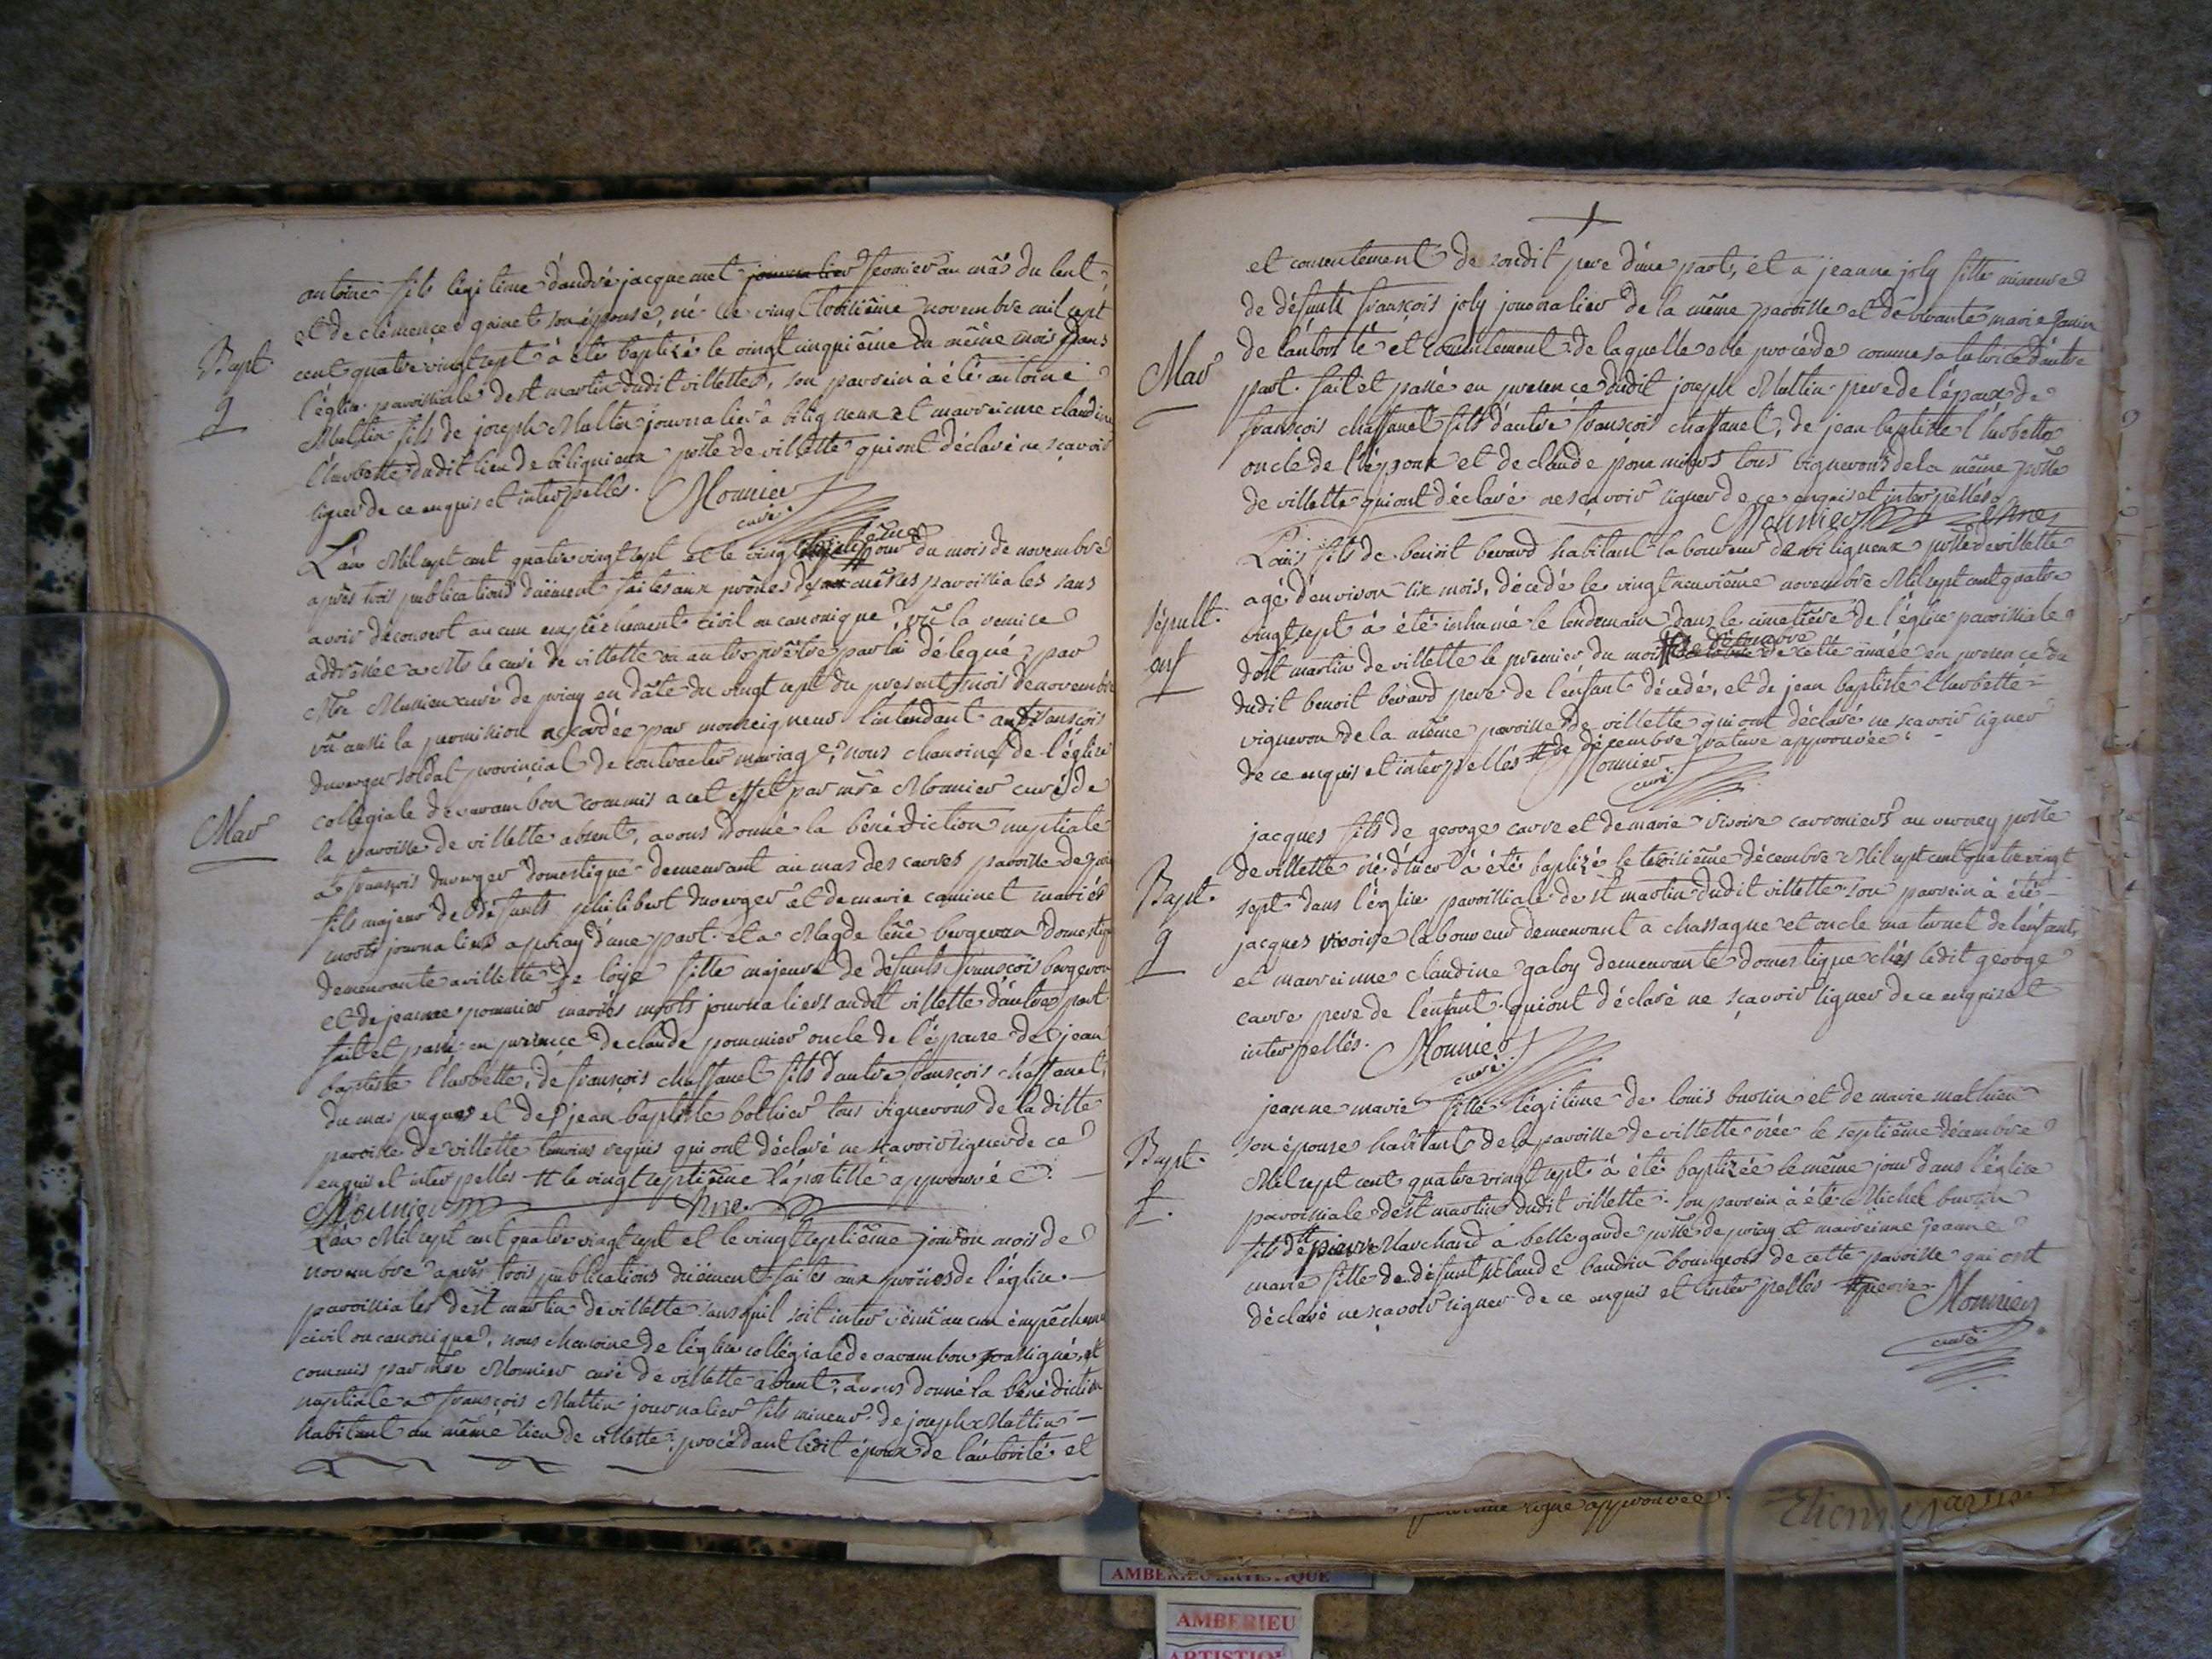 antoine fils légitime d'andré jacquemet journalier fermier au mas du lent
et de clémence guinet son épouse, né le vingt troisième novembre mil sept
Bapt. cent quatre vingt sept à été baptizé le vingt cinquième du même mois dans
g l'église paroissiale de st martin dudit villettes, son parrein à été antoine
Multin fils de joseph Multin journalier à biligneux et marreinne claudine
l'huvbette dudit lieu de biligneux psse de villette qui ont déclaré ne sçavoir
signer de ce enquis et interpellés. Mounier
curé
L'an Mil sept cent quatre vingt sept et le vingt jour du mois de novembre
après trois publications düement faites aux prônes des messes paroissiales sans
avoir découvert aucun empêchement civil ou canonique, vû la remise
addressée a Mr le curé de villette ou autre prêtre par lui délegué par
Mre curé de priay en date du vingt sept du present mois de novembre
vû aussi la permission accordée par monseigneur l'intendant a françois
duverger soldat provincial de contracter mariage, nous chanoine de l'église
collégiale de varambon commis a cet effet par mre Mounier curé de
Mar la paroisse de villette absent, avons donné la bénédiction nuptiale
a françois duverger domestique demeurant au mas des carres paroisse de priay
fils majeur de défunts philibert duverger et de marie caminet mariés
morts journaliers a priay d'une part. et a Magdeleine bergeron domestique
demeurante a villette de loije fille majeure de défunts françois bergeron
et de jeanne pommier mariés morts journaliers audit villette d'autre part
fait et passé en presence de claude pommier oncle de l'épouse de jean
baptiste l'huvbette, de françois chaffanet fils d'autre françois chaffanet
du mas et de jean baptiste bothier tous vignerons de la ditte
paroisse de villette temoins requis qui ont déclaré ne sçavoir signer de ce
enquis et interpelles # le vingt septième l'apostille approuvé
Mounier
L'an Mil sept cent quatre vingt sept et le vingt septième jour du mois de
novembre après trois publications düement faites aux prônes de l'église
paroissiales de st martin de villette sans qu'il soit intervenu aucun empêchement
civil ou canonique, nous chanoine de l'église collégiale de varambon soussigné, et
commis par mre Mounier curé de villette absent, avons donné la bénédiction
nuptiale a françois Multin journalier fils mineur de joseph Multin
habitant au même lieu de villette, procédant ledit époux de l'autorité et
et consentement de sondit pere d'une part, et a jeanne joly fille mineure
de défunt françois joly journalier de la même paroisse et de vivante marie
Mar de l'autorité et consentement de laquelle elle procéde comme sa tutrice d'autre
part. fait et passé en presence dudit joseph Multin pere de l'époux de
françois chaffanet fils d'autre françois chaffanet, de jean baptiste l'huvbette
oncle de l'époux et de claude pommier tous vignerons de la même psse
de villette qui ont déclaré ne sçavoir signer de ce enquis et interpellés
Mounier
Loüis fils de benoit berard habitant laboureur de biligneux psse de villette
agé d'environ six mois, décedé le vingt neuvième novembre Mil sept cent quatre
Sépult. vingt sept à été inhumé le lendemain dans le cimetière de l'église paroissiale
enf de st martin de villette le premier du mois de décembre de cette année en presence du
dudit benoit berard pere de l'enfant décedé, et de jean baptiste l'huvbette
vigneron de la même paroisse de villette qui ont déclaré ne sçavoir signer
de ce enquis et interpellés # de décembre rature approuvée.
Mounier
curé
jacques fils de george carre et de marie vivoire carroniers au verney psse
de villette né d'hier à été baptizé le troisième décembre Mil sept cent quatre vingt
Bapt. sept dans l'église paroissiale de st martin dudit villette son parrein à été
g jacques vivoire laboureur demeurant a chassagne et oncle maternel de l'enfant,
et marreinne claudine galoy demeurante domestique chés ledit george
carre pere de l'enfant qui ont déclaré ne sçavoir signer de ce enquis et
interpellés. Mounier
curé
jeanne marie fille légitime de loüis burtin et de marie mathieu
Bapt. son épouse habitant de la paroisse de villette née le septième décembre
f. Mil sept cent quatre vingt sept à été baptizée le même jour dans l'église
paroissiale de st martin dudit villette. son parrein à été Michel burtin
fils de # pierre Marchand à bellegarde psse de priay et marreinne jeanne
marie fille de défunt claude baudin bourgeois de cette paroisse qui ont
déclaré ne sçavoir signer de ce enquis et interpellés # pierre. Mounier
curé
une ligne approuvée.
Etienne
AMBERIEU ARTISTIQUE
AMBERIEU
ARTISTIQUE